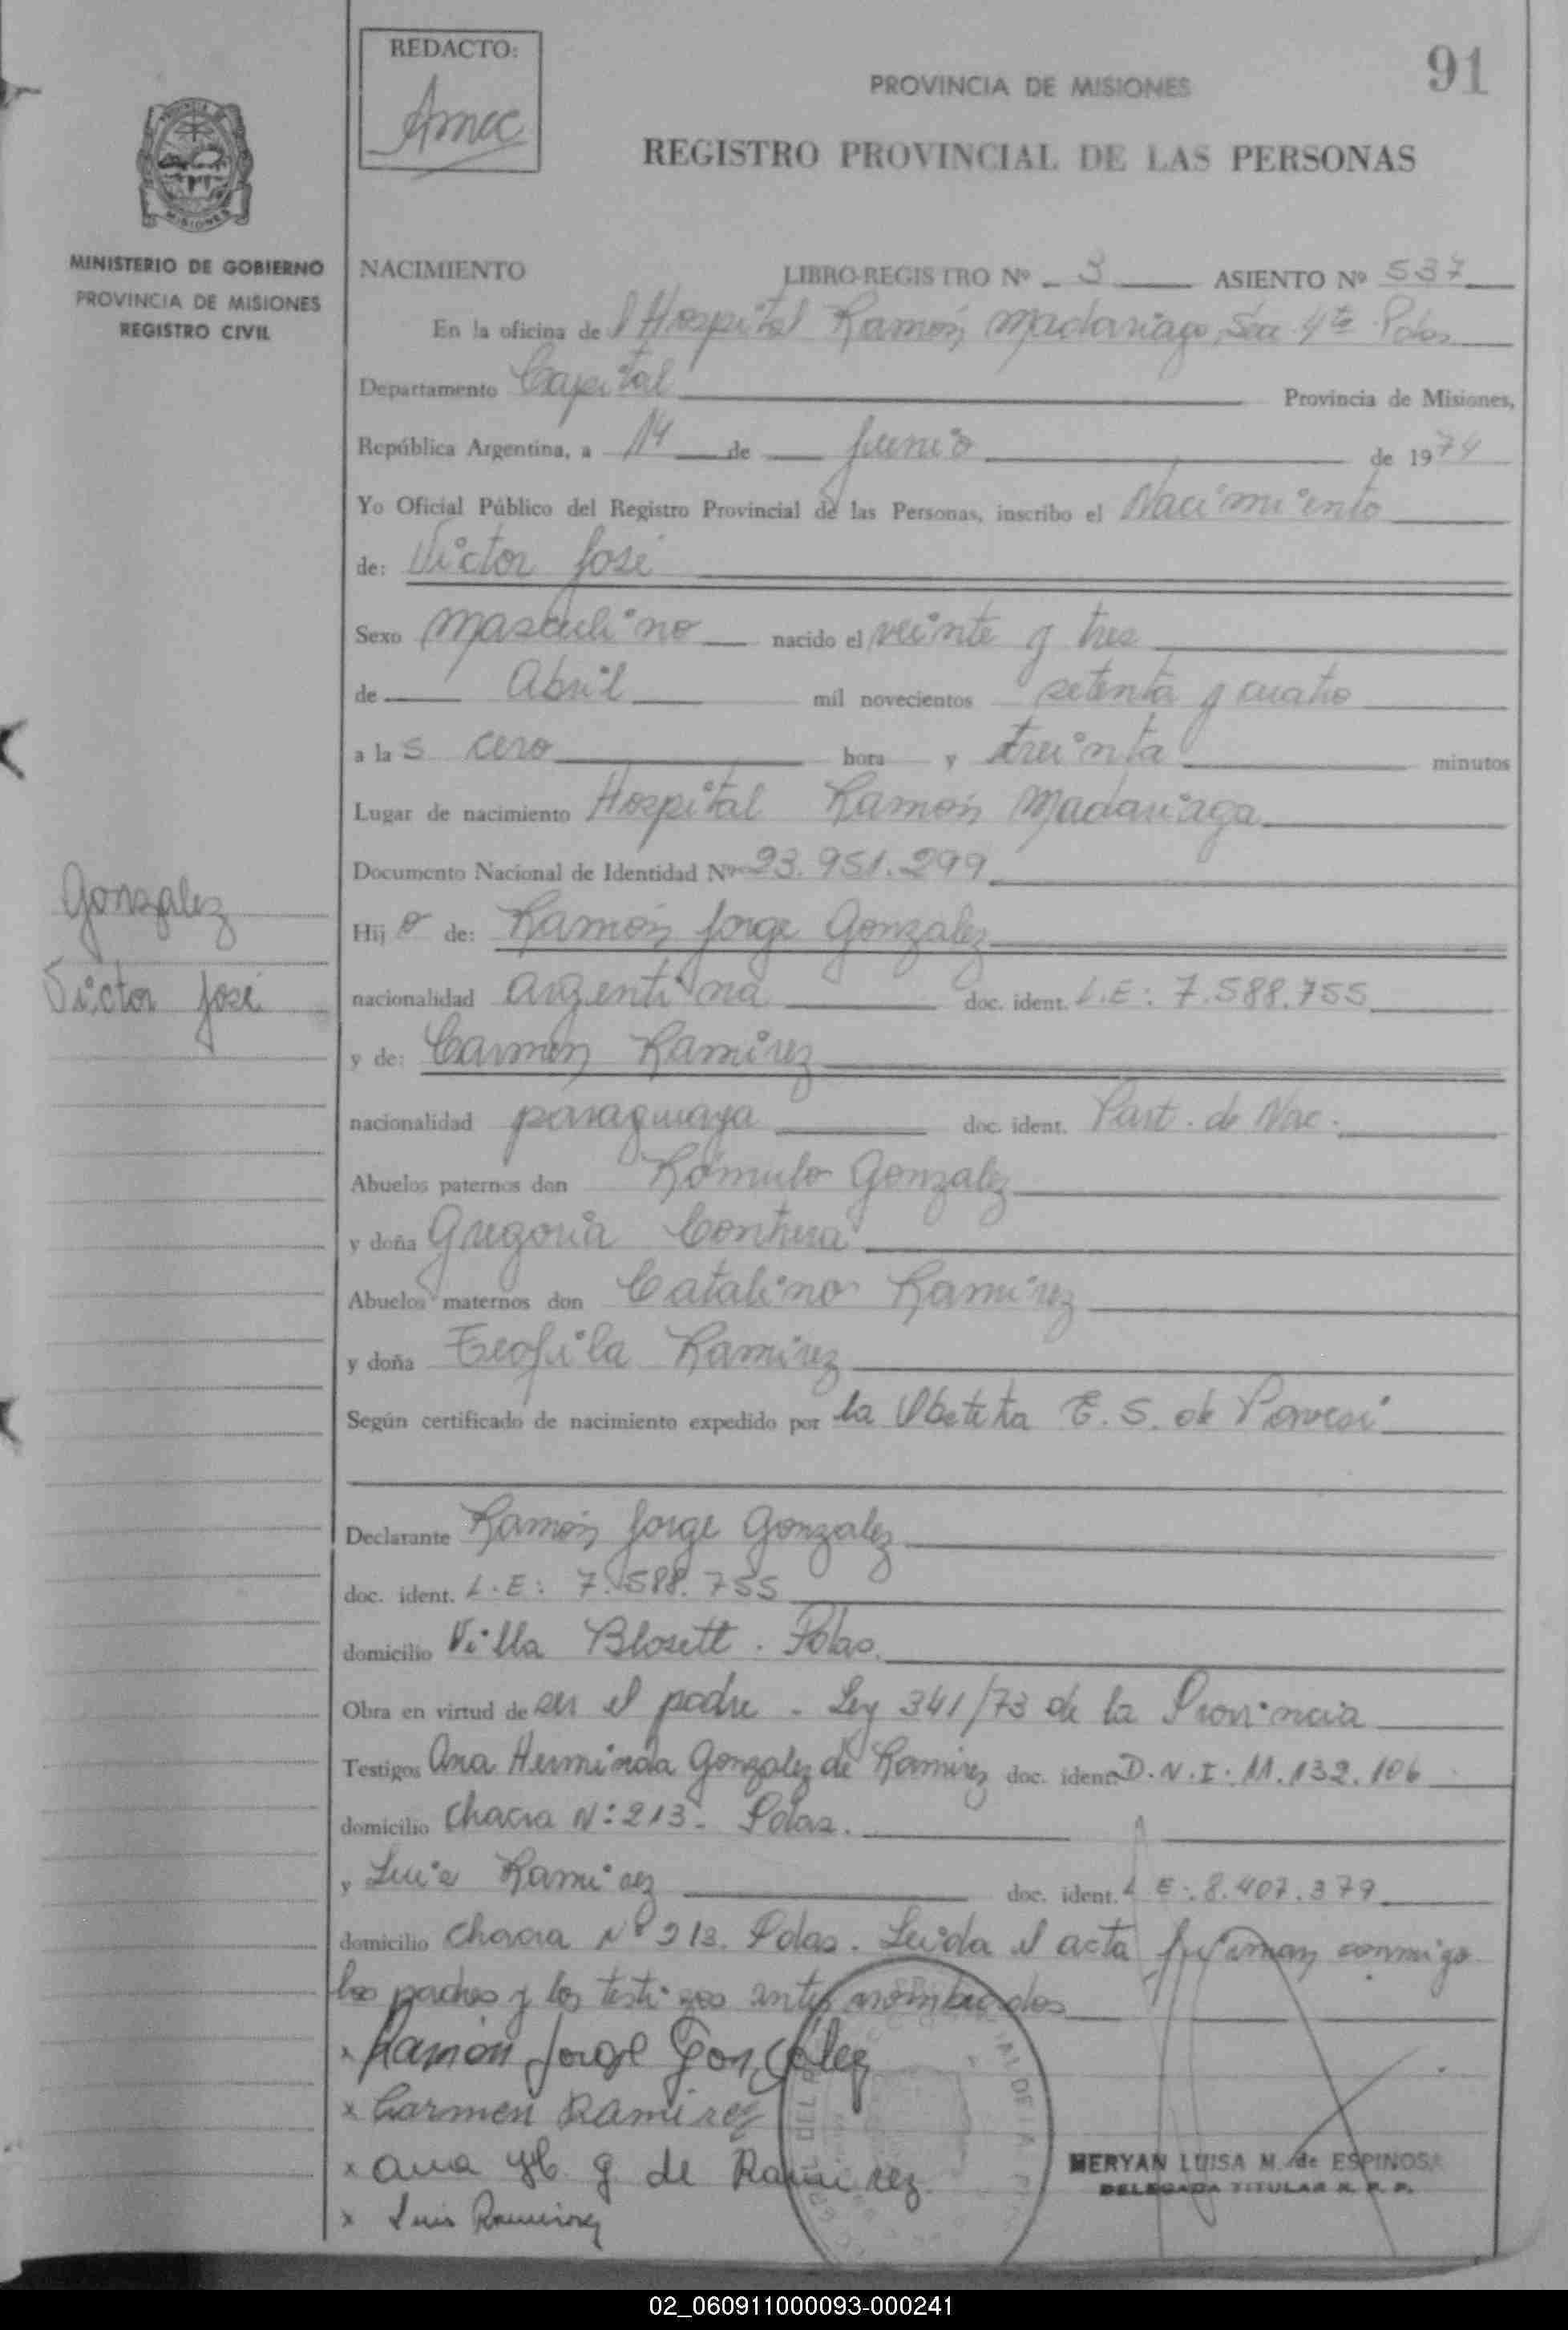 REDACTO:
Amec
91
PROVINCIA DE MISIONES
REGISTRO PROVINCIAL DE LAS PERSONAS
MISIONES
MINISTERIO DE GOBIERNO
PROVINCIA DE MISIONES
REGISTRO CIVIL
NACIMIENTO LIBRO-REGISTRO Nº 3 ASIENTO Nº 537
En la oficina de l Hospital Ramón Madariaga, Sec. 4ta Pdas
Departamento Capital Provincia de Misiones,
República Argentina, a 14 de Junio de 1974
Yo Oficial Público del Registro Provincial de las Personas, inscribo el Nacimiento
de: Victor José
Sexo masculino nacido el veinte y tres
de Abril mil novecientos setenta y cuatro
a las cero hora y treinta minutos
Lugar de nacimiento Hospital Ramón Madariaga
Documento Nacional de Identidad Nº 23.951.299
Gonzalez
Victor José
Hijo de: Ramón Jorge Gonzalez
nacionalidad argentina doc. ident. L.E: 7.588.755
y de: Carmen Ramirez
nacionalidad paraguaya doc. ident. Part. de Nac.
Abuelos paternos don Rómulo Gonzalez
y doña Gregoria Contrera
Abuelos maternos don Catalino Ramirez
y doña Teofila Ramirez
Según certificado de nacimiento expedido por la Obstetra E. S. de
Declarante Ramón Jorge Gonzalez
doc. ident. L.E: 7.588.755
domicilio Villa Blosett. Pdas.
Obra en virtud de ser el padre - Ley 341/73 de la Provincia
Testigos Ana Herminda Gonzalez de Ramirez doc. ident. D.N.I. 11.132.106
domicilio Chacra Nº 213. Pdas.
y Luis Ramirez doc. ident. L E: 8.407.379
domicilio Chacra Nº 213. Pdas. Leida el acta firman conmigo
los padres y los testigos antes nombrados
x Ramón Jorge Gonzalez
x Carmen Ramirez
x Ana H. G. de Ramirez
x Luis Ramirez
MERYAN LUISA M. de ESPINOSA
DELEGADA TITULAR R. P. P.
02_060911000093-000241